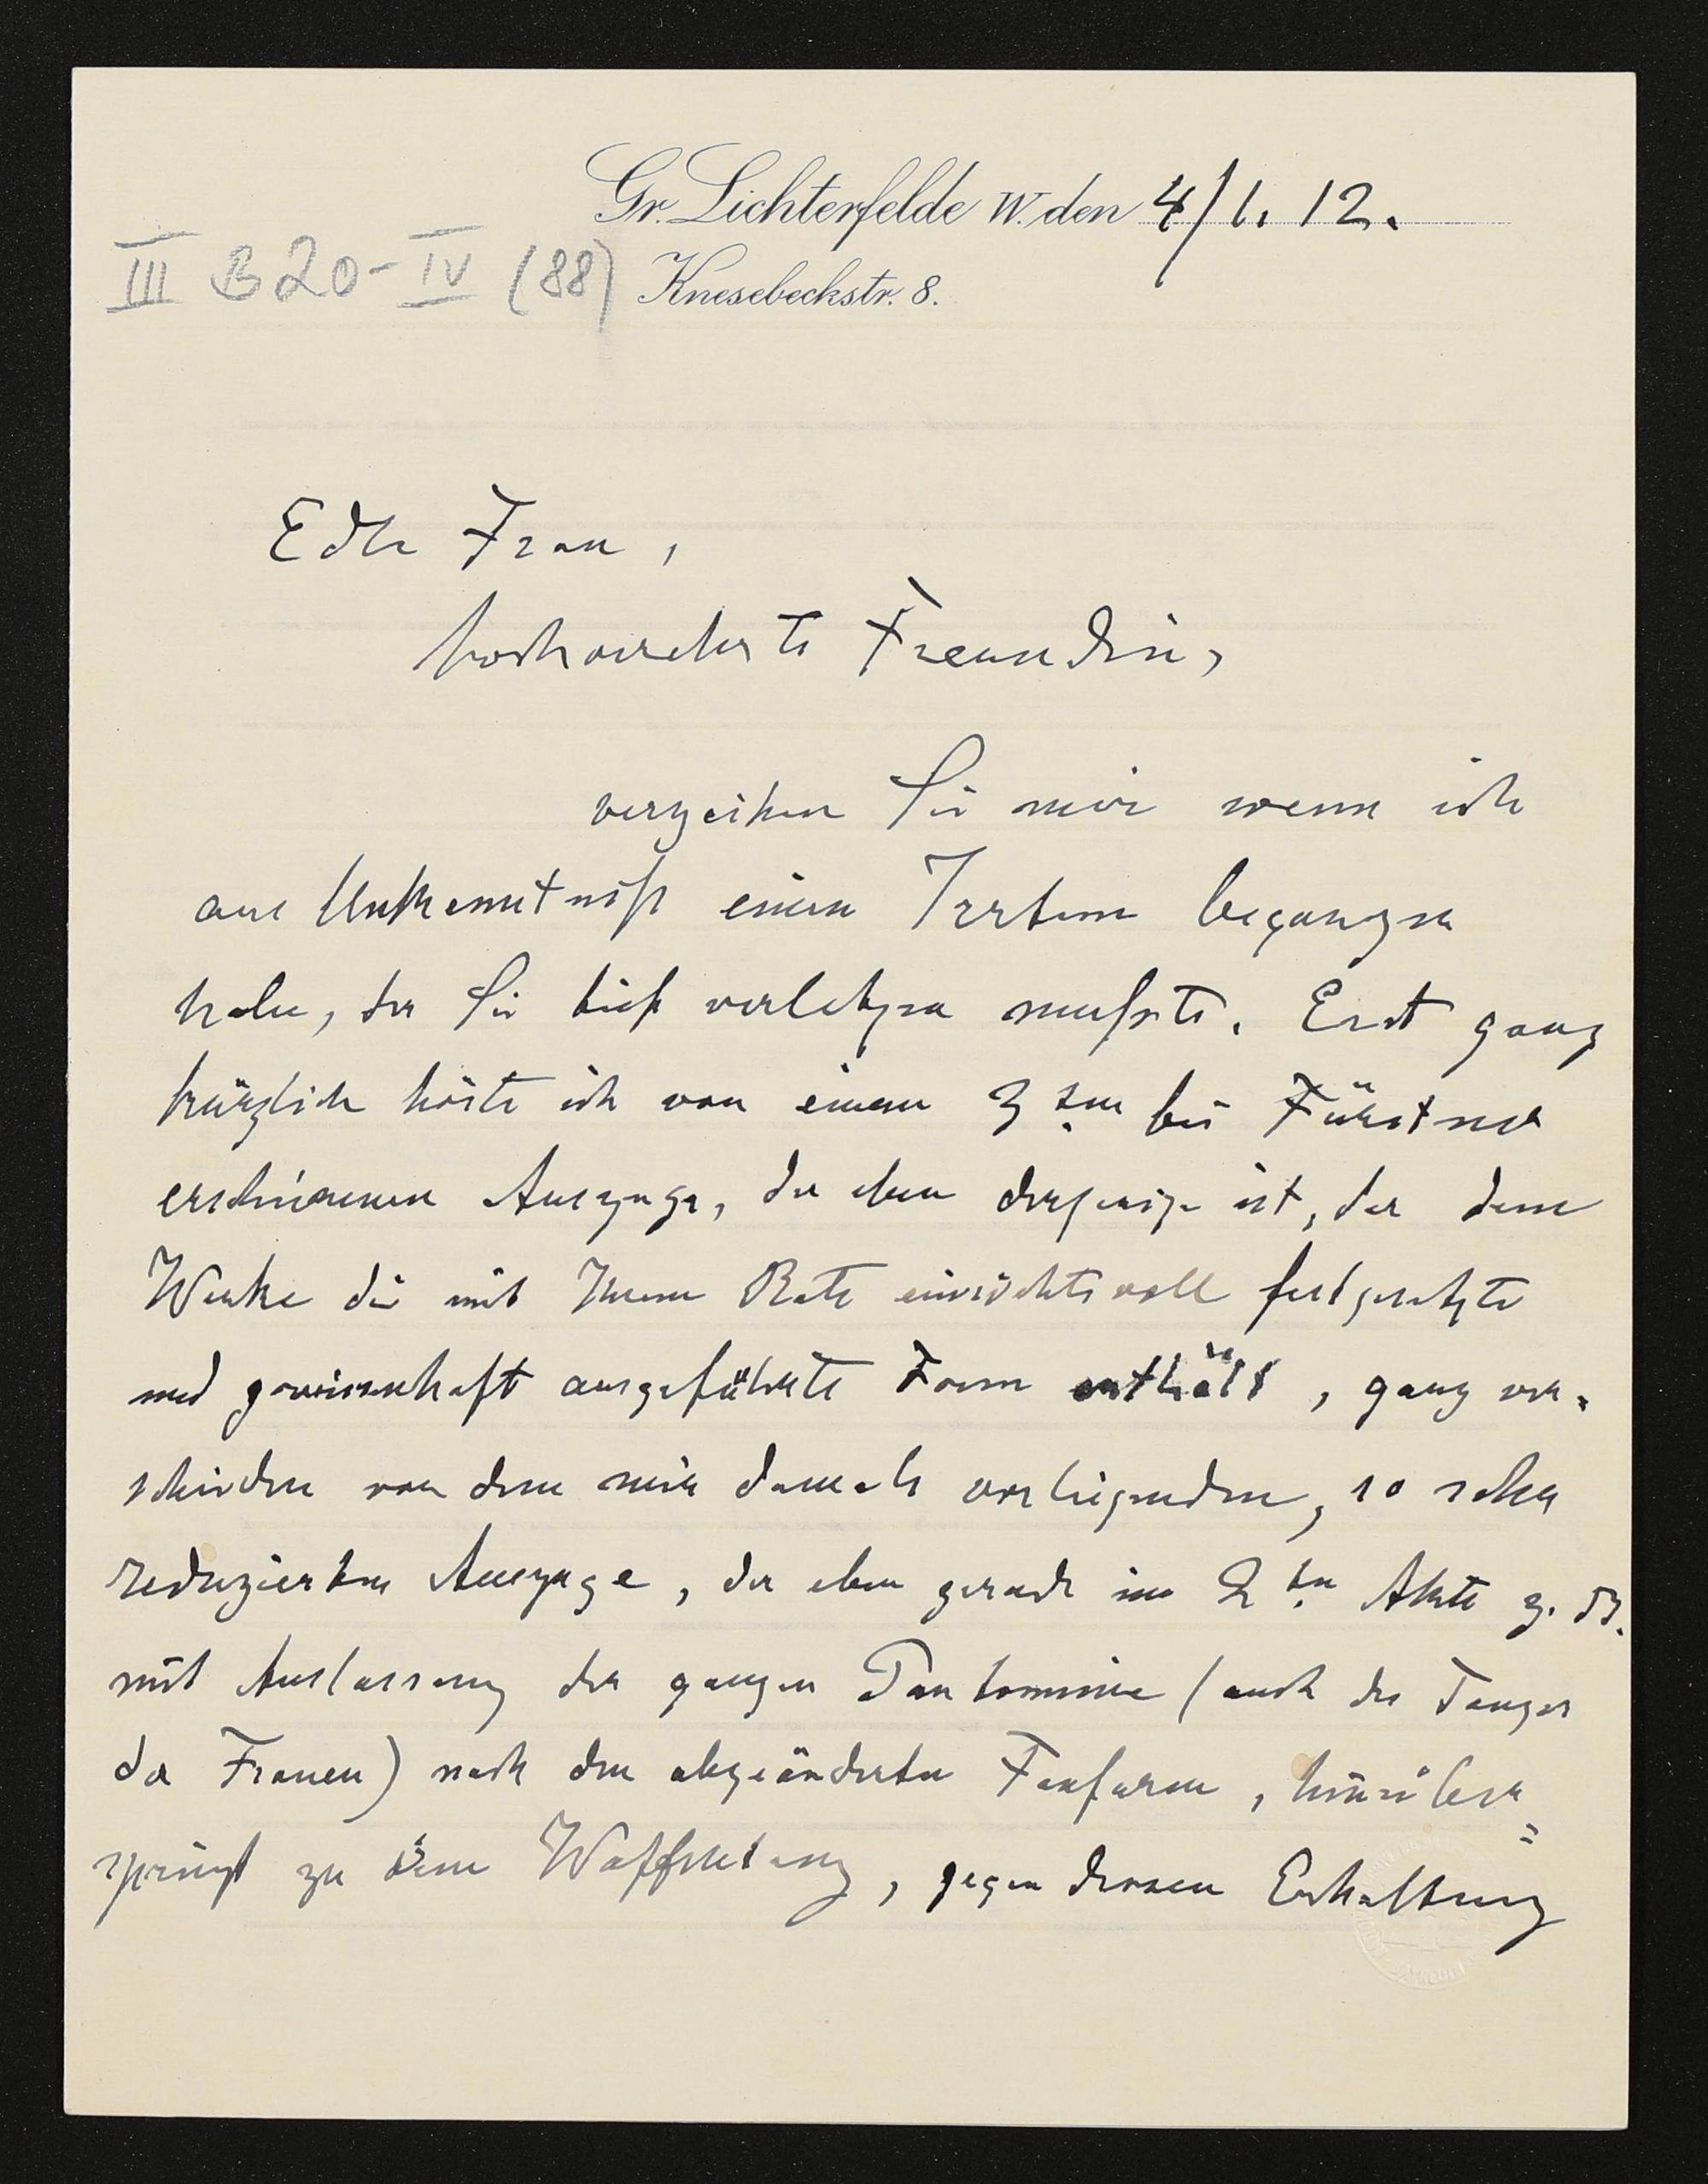 Gr. Lichterfelde W. den 4/1. 12.
III B 20-IV (88) Knesebeckstr. 8.
Edle Frau,
hochverehrte Freundin,
verzeihen Sie mir wenn ich
aus Unkenntniß einen Irrtum begangen
habe, der Sie tief verletzen mußte. Erst ganz
kürzlich hörte ich von einem 3ten bei Fürstner
erschienenen Auszuge, der eben derjenige ist, der dem
Werke die mit Ihrem Rate einsichtsvoll festgesetzte
und gewissenhaft ausgeführte Form enthält, ganz ver-
schieden von dem mir damals vorliegenden, so sehr
reduzierten Auszuge, der eben gerade im 2ten Akte z. B.
mit Auslassung der ganzen Pantomime (auch des Tanzes
der Frauen) nach den abgeänderten Fanfaren, hinüber=
springt zu dem Waffentanz, gegen dessen Erhaltung